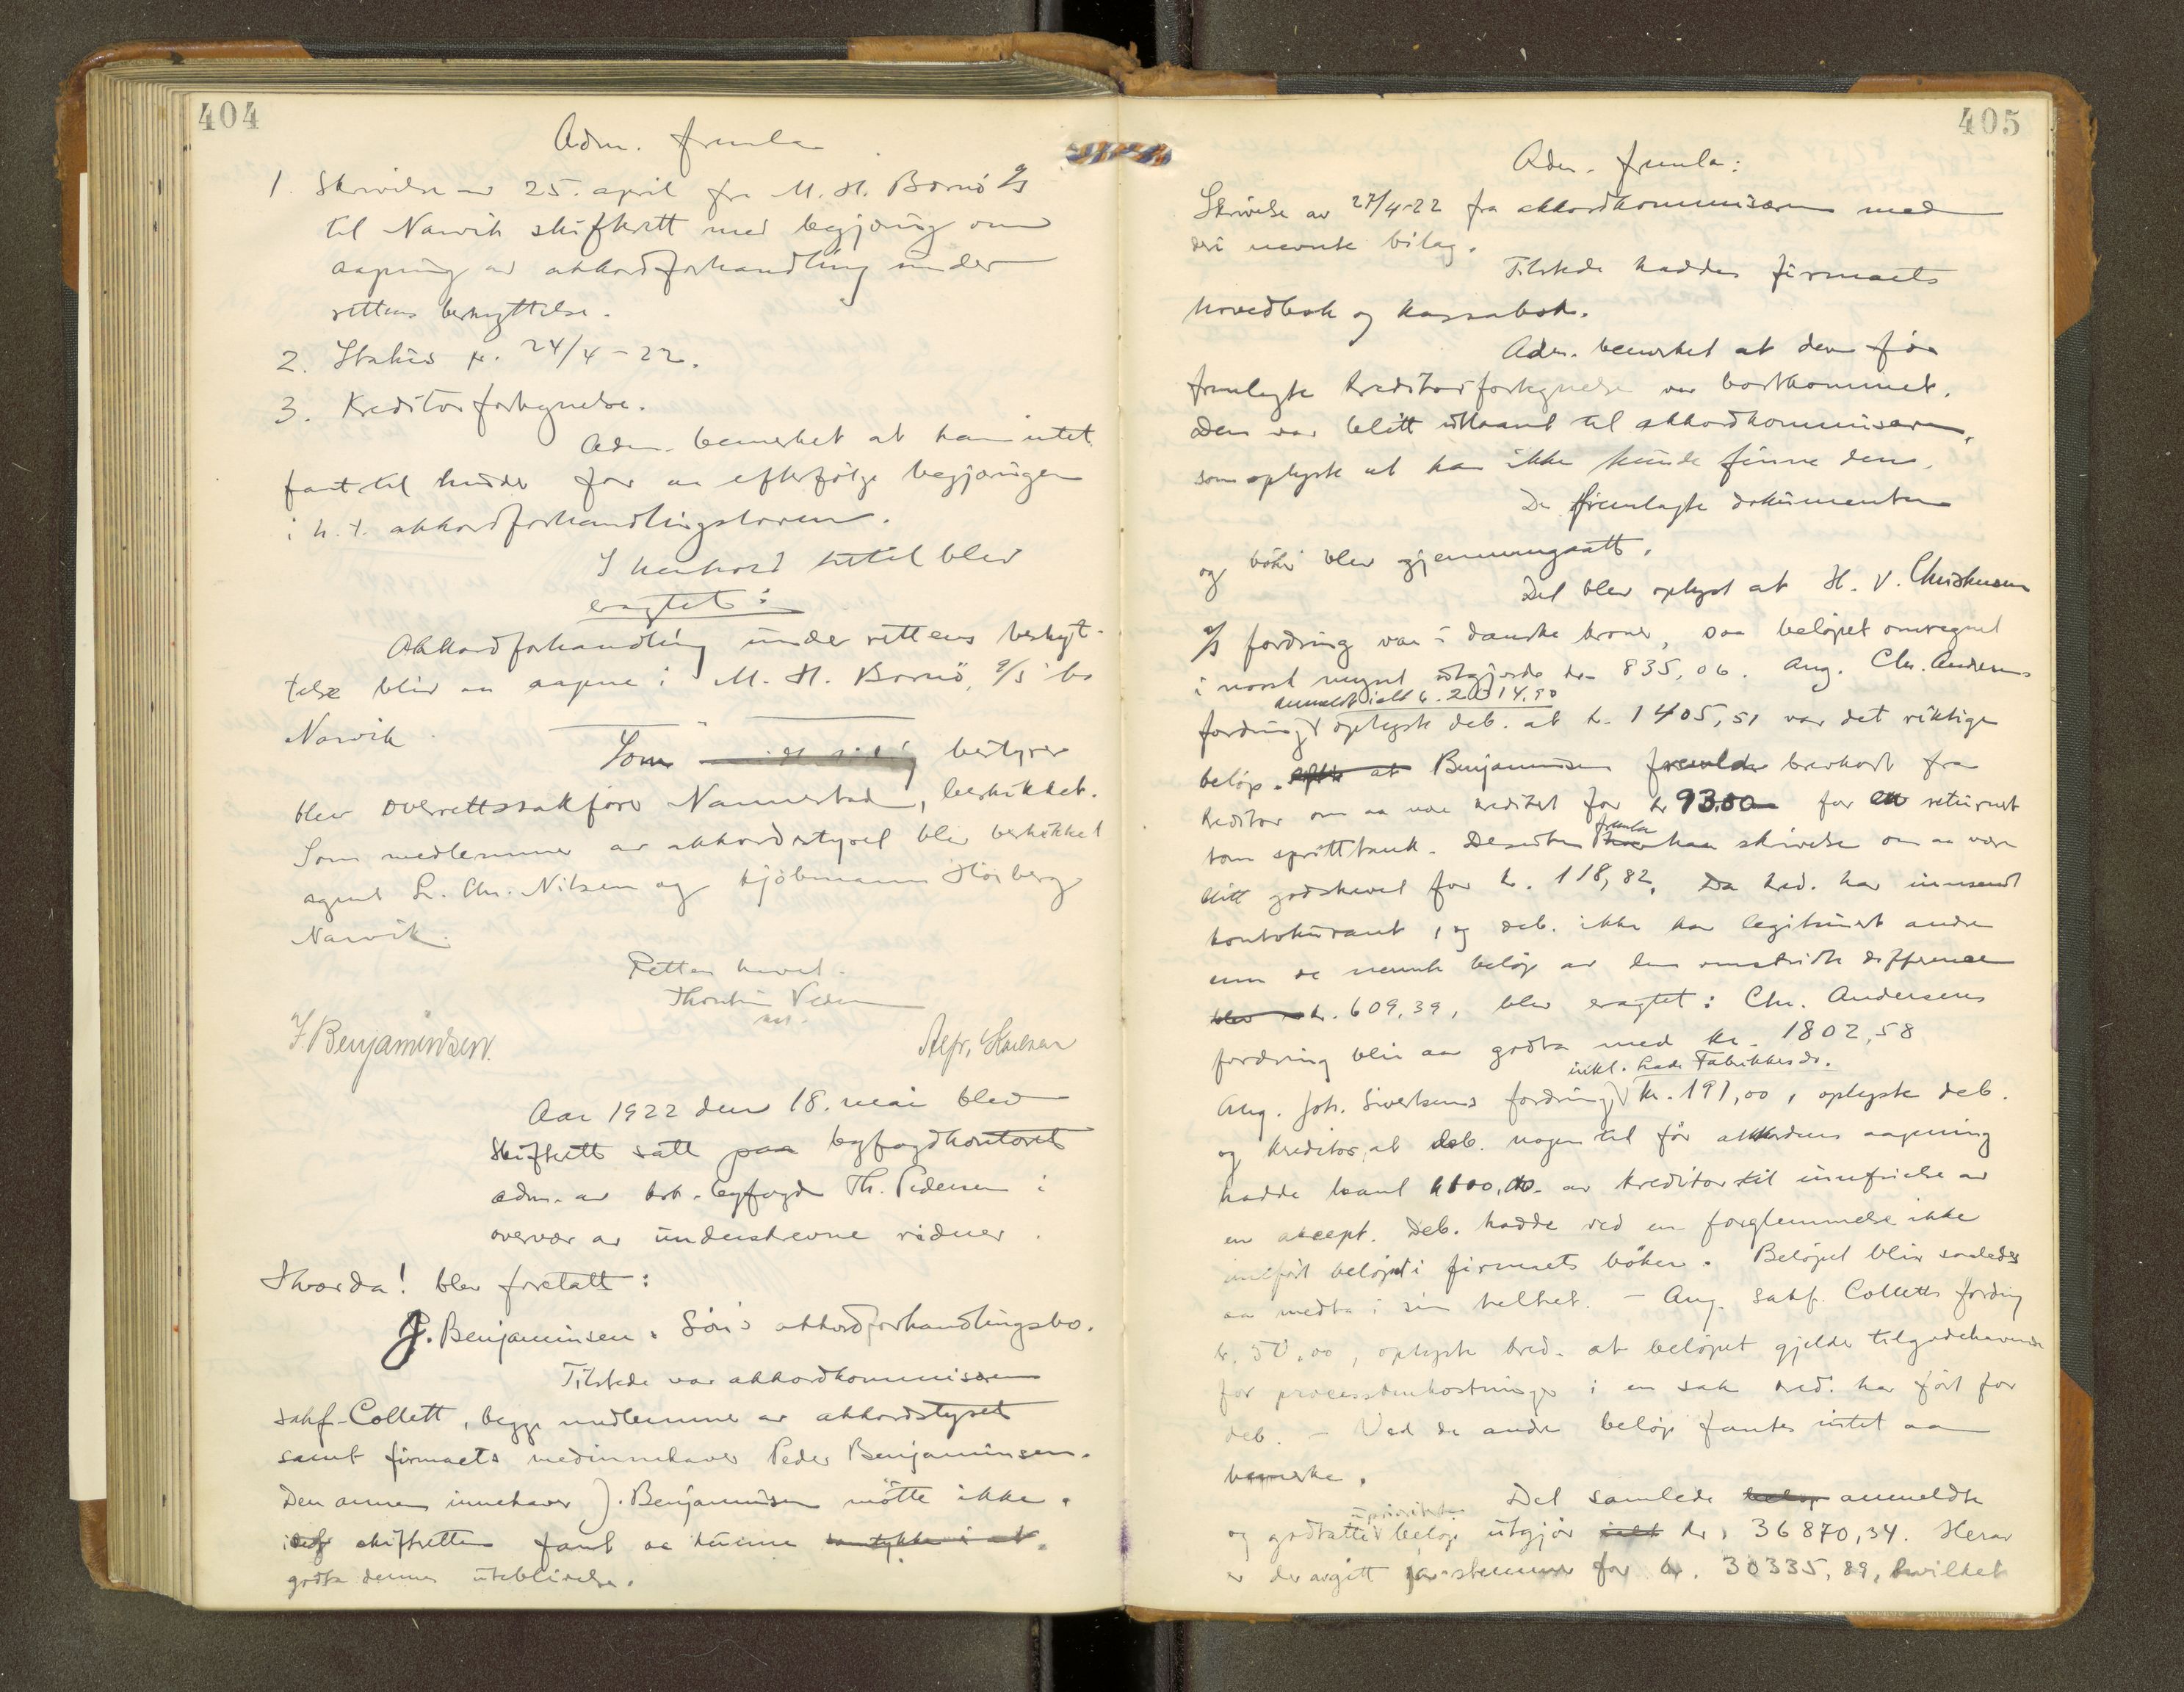 404
Adm. fremla
1. Skrivelse av 25. april fra M. H. Bornö A/S
til Narvik skifterett med begjæring om
aapning av akkordforhandling under
rettens beskyttelse.
2. Status pr. 24/4-22.
3. Kreditorfortegnelse.
Adm. bemerket at han intet
fant til hinder for aa efterfølge begjæringen
i h.t. akkordforhandlingsloven.
I henhold hertil blev
eragtet:
Akkordforhandling under rettens beskyt-
telse blir aa aapne i M. H. Bornö, A/S' bo
Narvik.
Som bestyrer
blev overrettssakfører Nannestad, beskikket.
Som medlemmer av akkordstyret blev beskikket
agent L. Chr. Nilsen og kjøbmann Höiberg
Narvik.
Retten hevet.
J. Benjaminsen.
Aar 1922 den 18. mai blev
skifterett satt paa byfogdkontoret
adm. av kst. byfogd Th. Pedersen i
overvær av underskrevne vidner.
Hvorda! blev foretatt:
J. Benjaminsen & Søn's akkordforhandlingsbo.
Tilstede var akkordkommisæren
sakf. Collett, begge medlemmer av akkordstyret
samt firmaets medinnehaver Peder Benjaminsen.
Den annen innehaver J. Benjaminsen møtte ikke.
skifteretten fant aa kunne samtykke i at
godta dennes uteblivelse.
405
Adm. fremla:
Skrivelse av 27/4-22 fra akkordkommisæren med
deri nevnte bilag.
Tilstede haddes firmaets
hovedbok og kassabok.
Adm. bemerket at den før
fremlagte kreditorfortegnelse var bortkommet.
Den var blitt utlaant til akkordkommisæren,
som oplyste at han ikke kunde finne den.
De fremlagte dokumenter
og bøker blev gjennemgaatt.
Det blev oplyst at H. V. Christensen
A/S fordring var i danske kroner, saa beløpet omregnet
i norsk mynt utgjorde kr. 835,06. Ang. Chr. Andersens
anmeldt ialt kr. 2014.90
fordring oplyste deb. at kr. 1405,51 var det riktige
beløp. at Benjaminsen fremla brevkort fra
kreditor om aa være kreditert for kr 93.00 for en returnert
tom sprittank. Desuten fremla han skrivelse om aa være
blitt godskrevet for kr. 118,82. Da kred. har innsendt
kontokurant, og deb. ikke har legitimert andre
enn de nevnte beløp av den omstridte differense
blev kr. 609,39, blev eragtet: Chr. Andersens
fordring blir aa godta med kr. 1802,58
inkl. Lade Fabrikker do.
Ang. Joh. Sivertsens fordring kr. 191,00, oplyste deb.
og kreditor, at deb. nogen tid før akkordens aapning
hadde laant kr 100,00 av kreditor til innfrielse av
en aksept. Deb. hadde ved en forglemmelse ikke
innført beløpet i firmaets bøker. Beløpet blir saaledes
aa medta i sin helhet. – Ang. sakf. Colletts fordring
kr. 50,00, oplyste kred. at beløpet gjelder tilgodehavende
for processomkostninger i en sak kred. har ført for
deb. – Ved de andre beløp fantes intet aa
bemerke.
Det samlede beløp anmeldte
uprioriterte
og godtatte beløp utgjør ialt kr. 36870,34. Herav
er der avgitt ja-stemmer for kr. 30335,89, hvilket